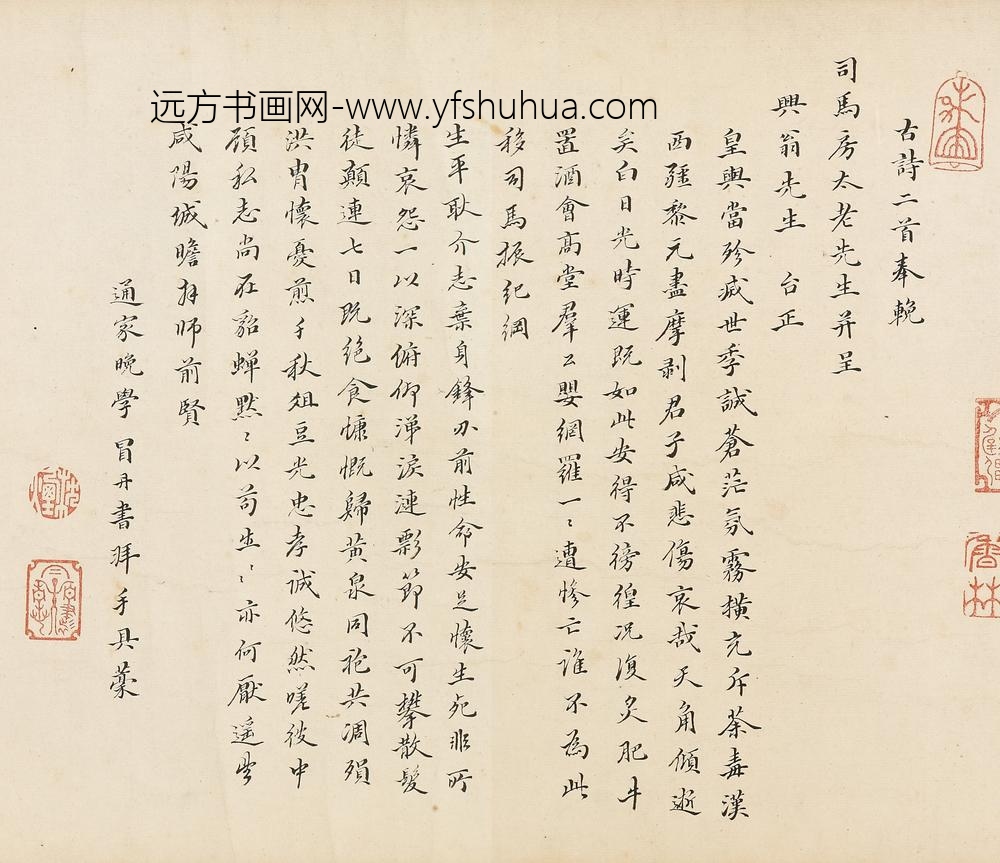 远方书画网-www.yfshuhua.com
古詩二首奉輓
司馬房太老先生并呈
興翁先生 台正
皇輿當殄滅世季誠蒼茫氛霧橫充斥荼毒漢
西疆黎元盡摩剥君子咸悲傷哀哉天角傾逝
矣白日光時運既如此安得不徬徨况復炙肥牛
置酒會高堂羣公嬰網羅一〻遭慘亡誰不為此
移司馬振紀綱
生平耿介志棄身鋒刃前性命安足懷生死非所
憐哀怨一以深俯仰涕淚漣彯節不可攀散髮
徒顛連七日既絶食慷慨歸黄泉同袍共凋殞
洪胄懷憂煎千秋俎豆光忠孝誠悠然嗟彼中
顔私志尚在貂蟬默〻以苟生〻亦何厭遥望
咸陽城瞻拜師前賢
通家晚學冒丹書拜手具藁